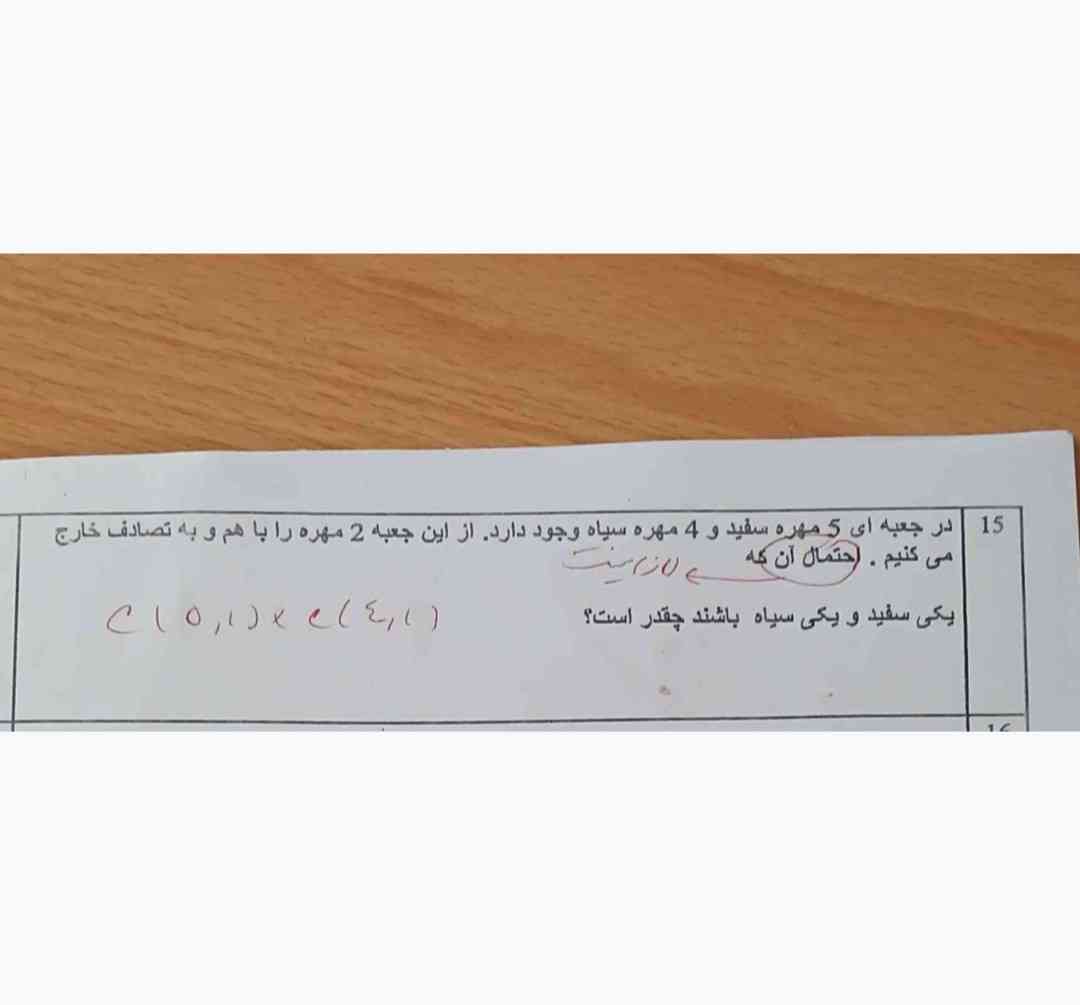 15
در جعبه ای 5 مهره سفید و 4 مهره سیاه وجود دارد. از این جعبه 2 مهره را با هم و به تصادف خارج
می کنیم . احتمال آن که
یکی سفید و یکی سیاه باشند چقدر است؟
C(۵,۱)×C(٤,۱)